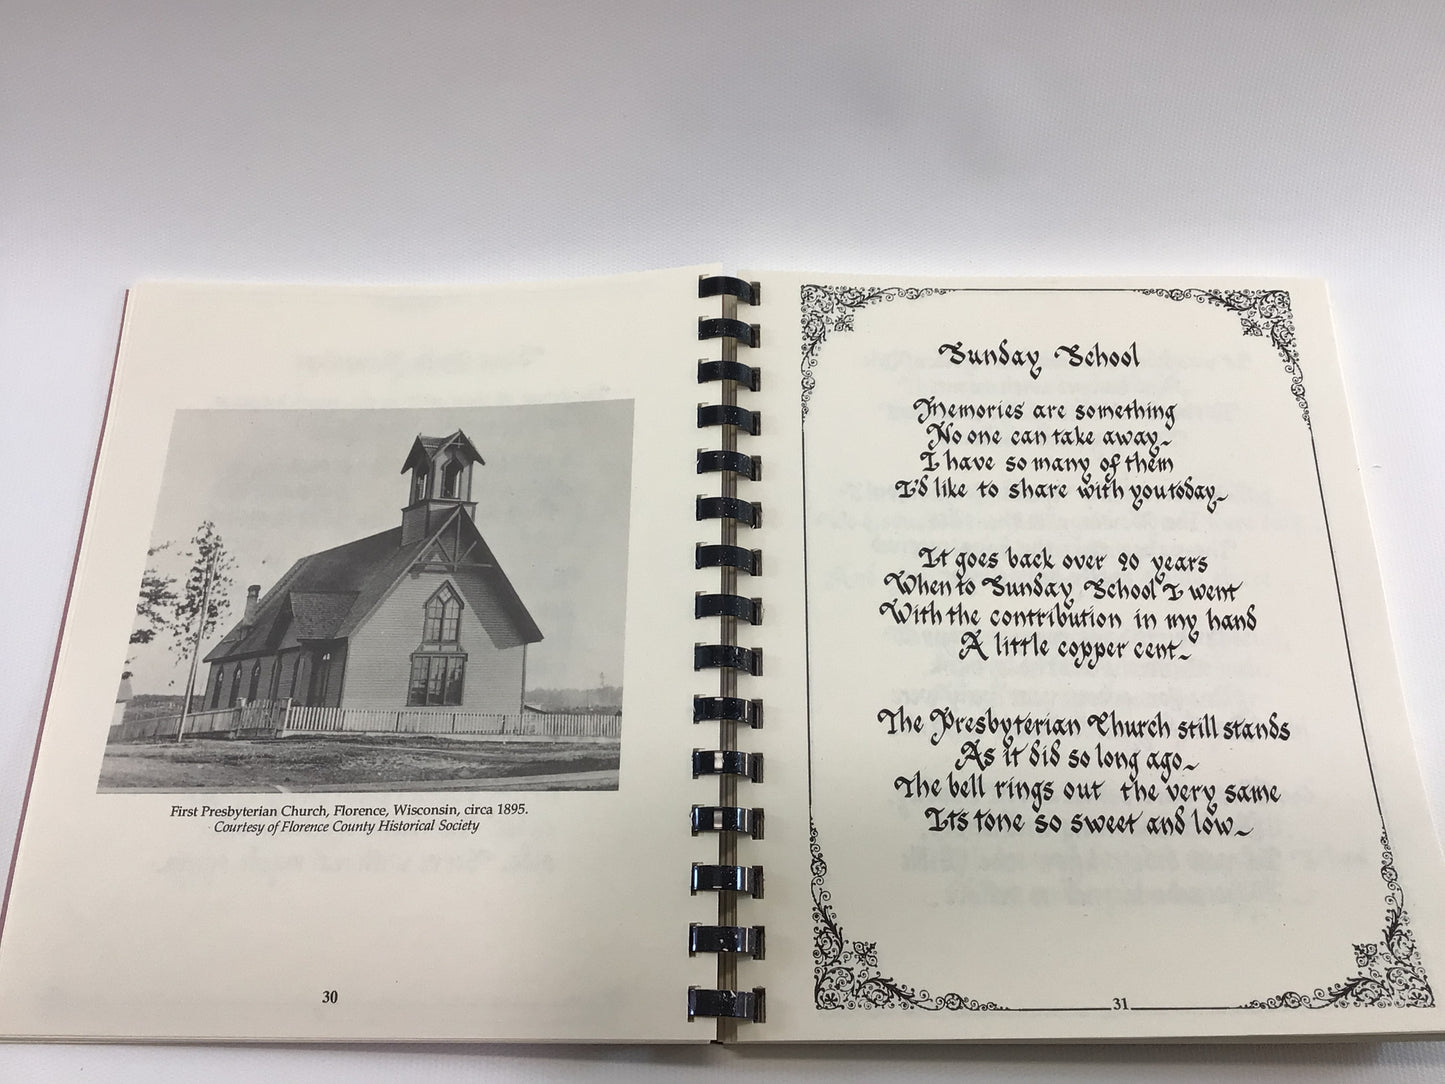 First Presbyterian Church, Florence, Wisconsin, circa 1895.
Courtesy of Florence County Historical Society
30
Sunday School
Memories are something
No one can take away
I have so many of them
I'd like to share with you today
It goes back over 90 years
When to Sunday School I went
With the contribution in my hand
A little copper cent
The Presbyterian Church still stands
As it did so long ago
The bell rings out the very same
Its tone so sweet and low
31